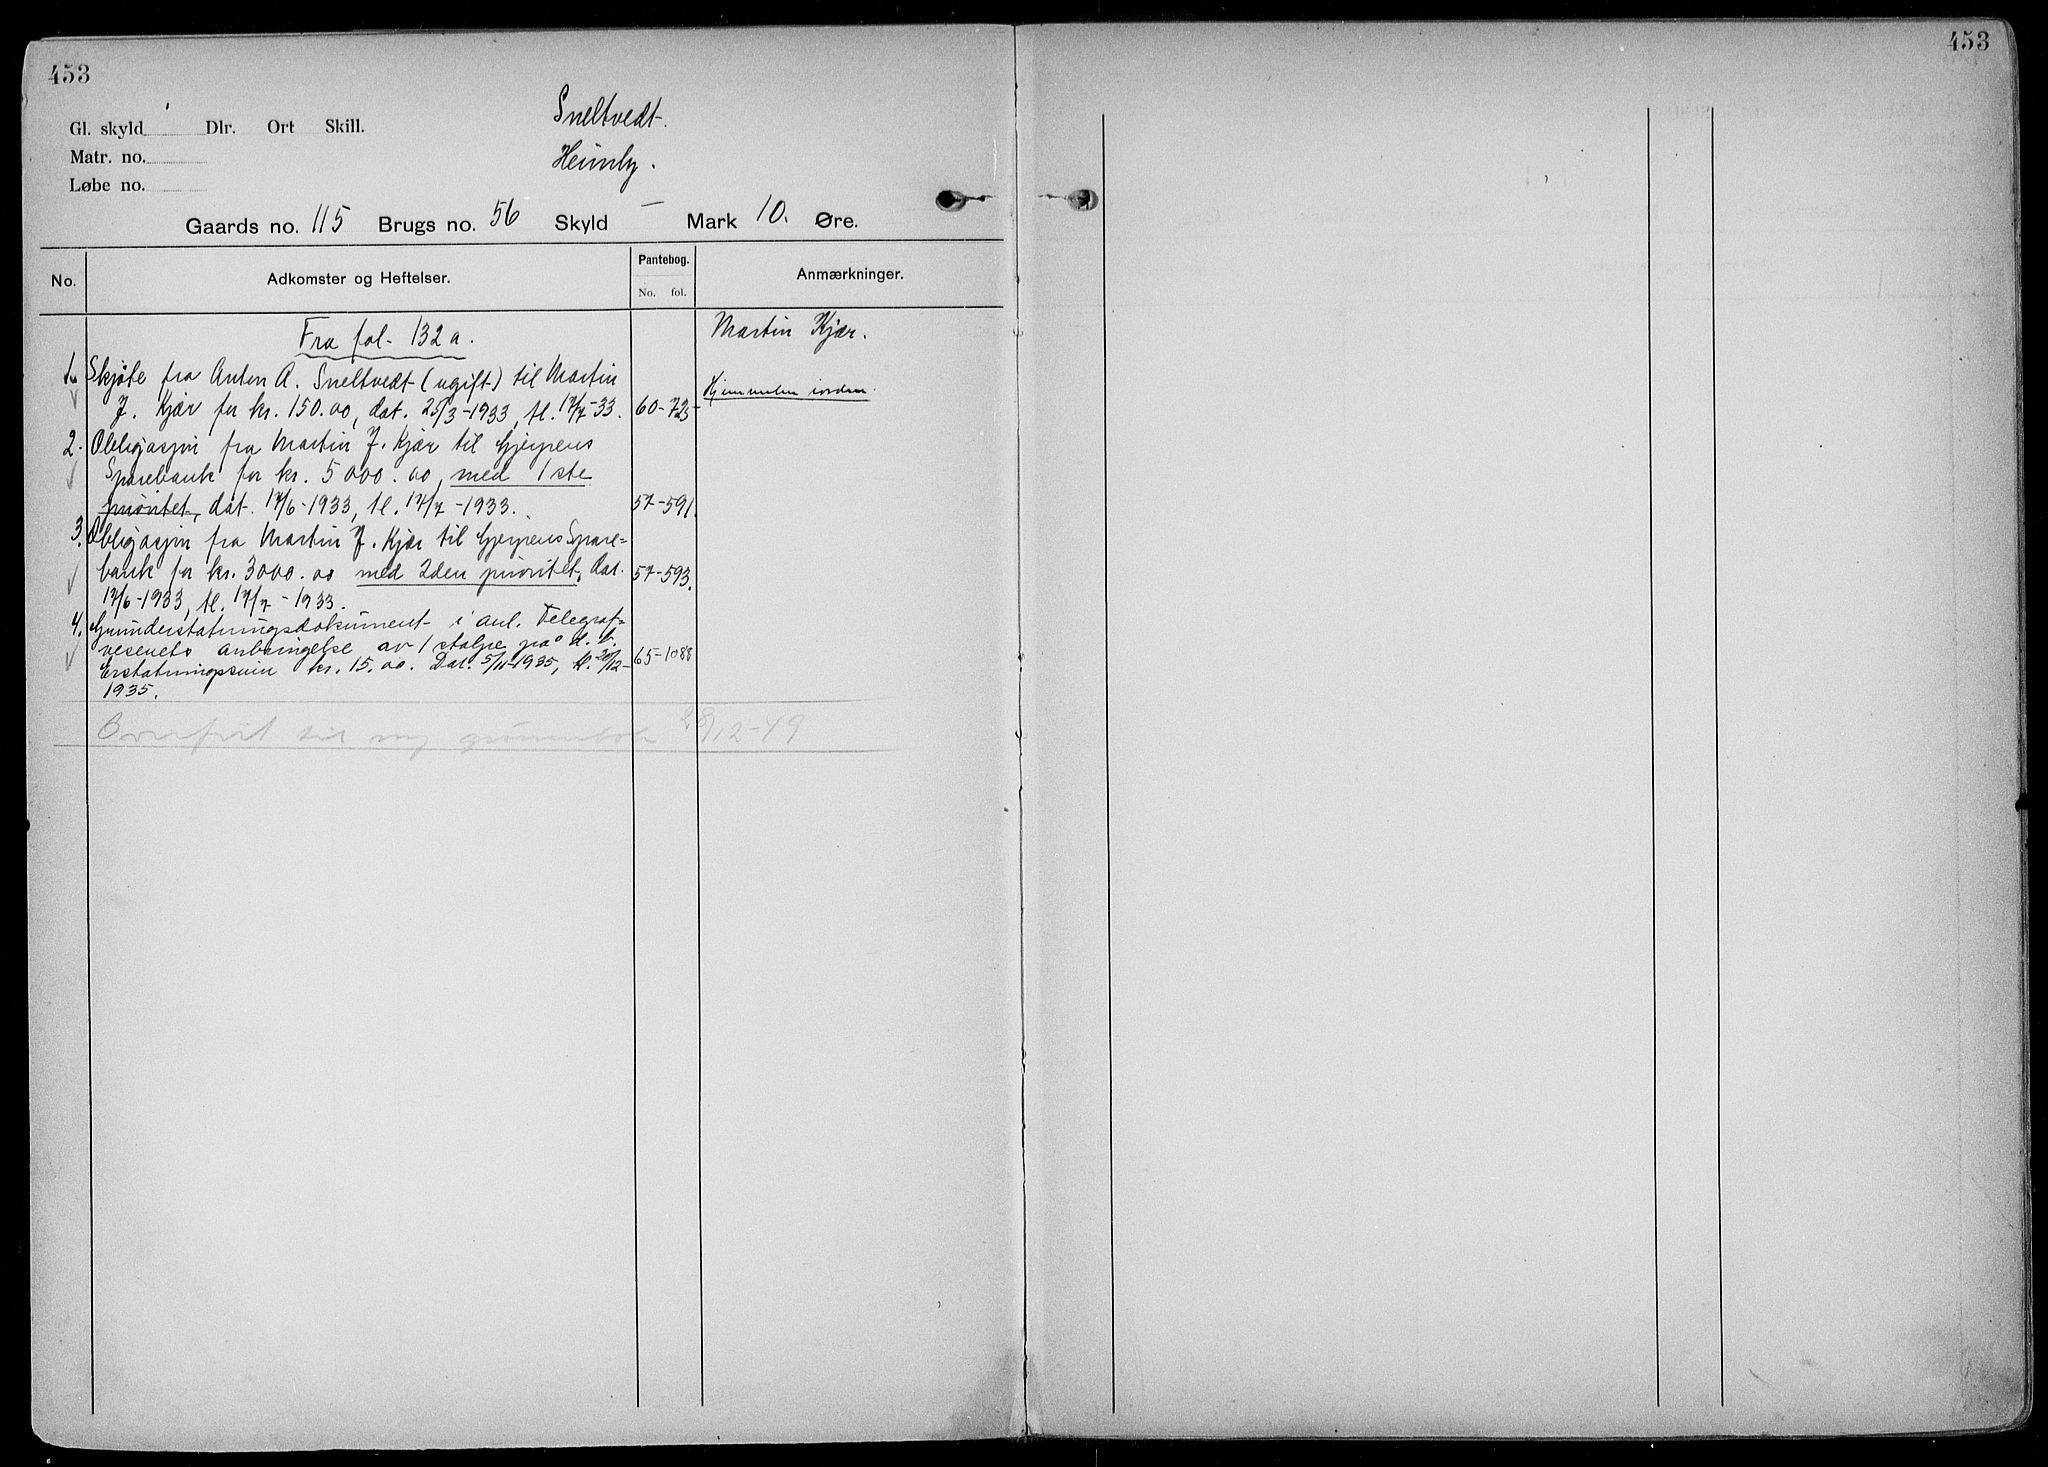 453
453
Sneltvedt.
Gl. skyld Dlr. Ort Skill.
Matr. no.
Heimly.
Løbe no.
Gaards no. 115 Brugs no. 56 Skyld – Mark 10. Øre.
No. Adkomster og Heftelser. Pantebog. No. fol. Anmærkninger.
Fra fol. 132a. Martin Kjær.
1. Skjøte fra Anton A. Sneltvedt (ugift) til Martin Hjemmelen i orden.
J. Kjær for kr. 150.00, dat. 25/3-1933, tl. 17/7-33. 60-725
2. Obligasjon fra Martin J. Kjær til Gjerpens
Sparebank for kr. 5000.00, med 1ste
prioritet, dat. 17/6-1933, tl. 17/7-1933. 57-591.
3. Obligasjon fra Martin J. Kjær til Gjerpens Spare=
bank for kr. 3000.00 med 2den prioritet, dat. 57-593.
17/6-1933, tl. 17/7-1933.
4. Grunderstatningsdokument i anl. Telegraf-
vesenets anbringelse av 1 stolpe på d. b.
Erstatningssum kr. 15.00. Dat. 5/11-1935, tl. 20/12- 65-1088
1935.
Overført til ny grunnbok 28/12-49